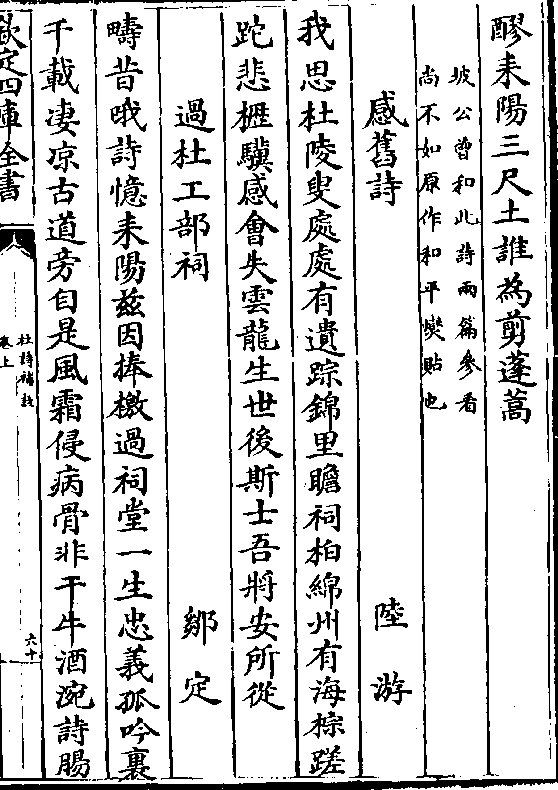 醪耒陽三尺土誰為剪蓬蒿
坡公曾和此詩兩篇參看
尚不如原作和平熨貼也
感舊詩 陸游
我思杜陵叟處處有遺踪錦里瞻祠柏綿州有海棕蹉
跎悲櫪驥感會失雲龍生世後斯士吾將安所從
過杜工部祠 鄒定
疇昔哦詩憶耒陽兹因捧檄過祠堂一生忠義孤吟裏
千載凄凉古道旁自是風霜侵病骨非干牛酒涴詩腸
欽定四庫全書
杜詩補註
卷上
六十